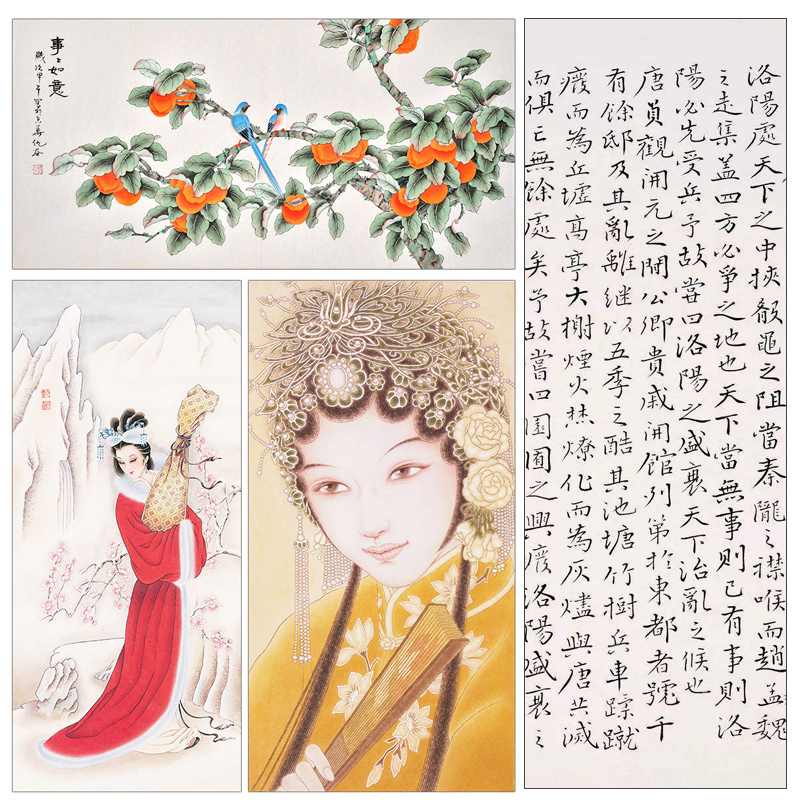 事〻如意
歲次甲午
洛陽處天下之中挾殽黽之阻當秦隴之襟喉而趙孟魏
之走集蓋四方必爭之地也天下當無事則已有事則洛
陽必先受兵予故嘗曰洛陽之盛衰天下治亂之候也
唐貞觀開元之間公卿貴戚開館列第於東都者號千
有餘邸及其亂離繼以五季之酷其池塘竹樹兵車蹂蹴
廢而為丘墟高亭大榭煙火焚燎化而為灰燼與唐共滅
而俱亡無餘處矣予故嘗曰園囿之興廢洛陽盛衰之